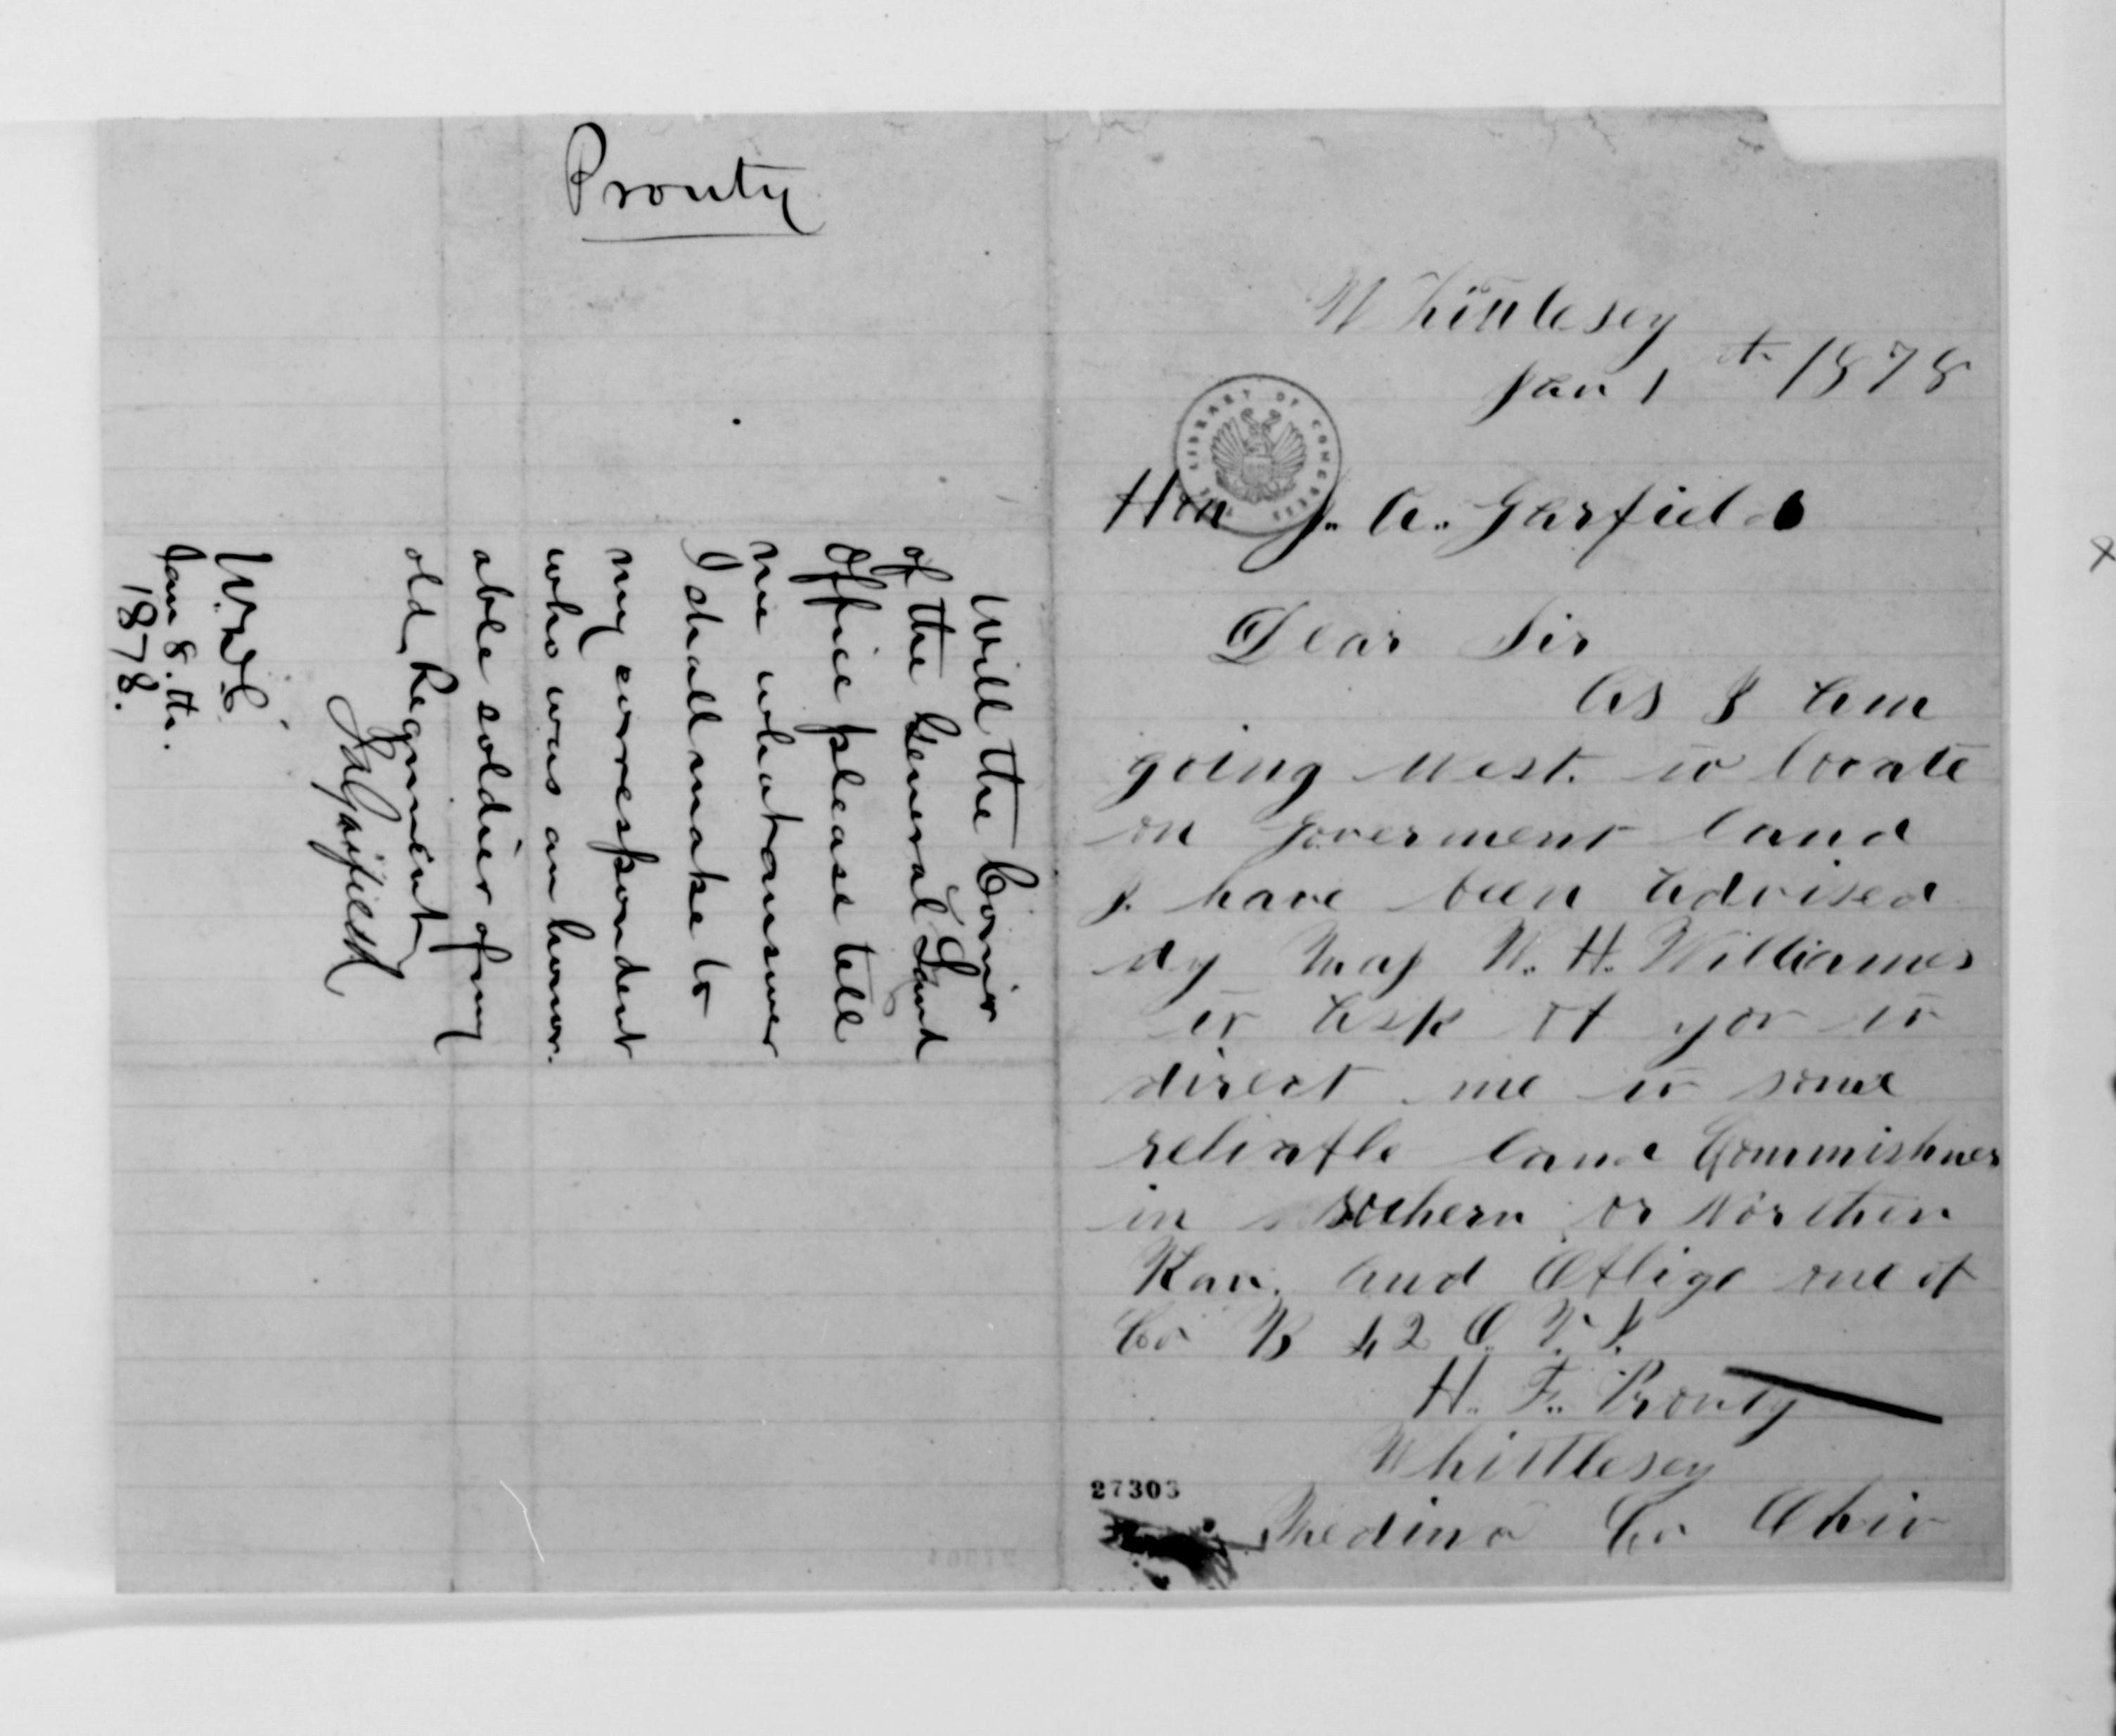 Prouty
Will the Comr
of the General Land
Office please tell
me what answer
I shall make to
my correspondent
who was an honor-
able soldier of my
old Regiment
JAGarfield
W. D.C.
Jan 8.th.
1878.
Whittlesey
Jan 1th 1878
LIBRARY OF CONGRESS
Hon J. A. Garfield
Dear Sir
As I am
going West to locate
on Goverment land
I have been Advised
by Maj W. H. Williames
to Ask of you to
direct me to some
reliable land Commishner
in Sothern or Northern
Kan. And Oblige one of
Co B 42 O. V. I.
H. F. Prouty
Whittlesey
Medina Co Ohio
27303